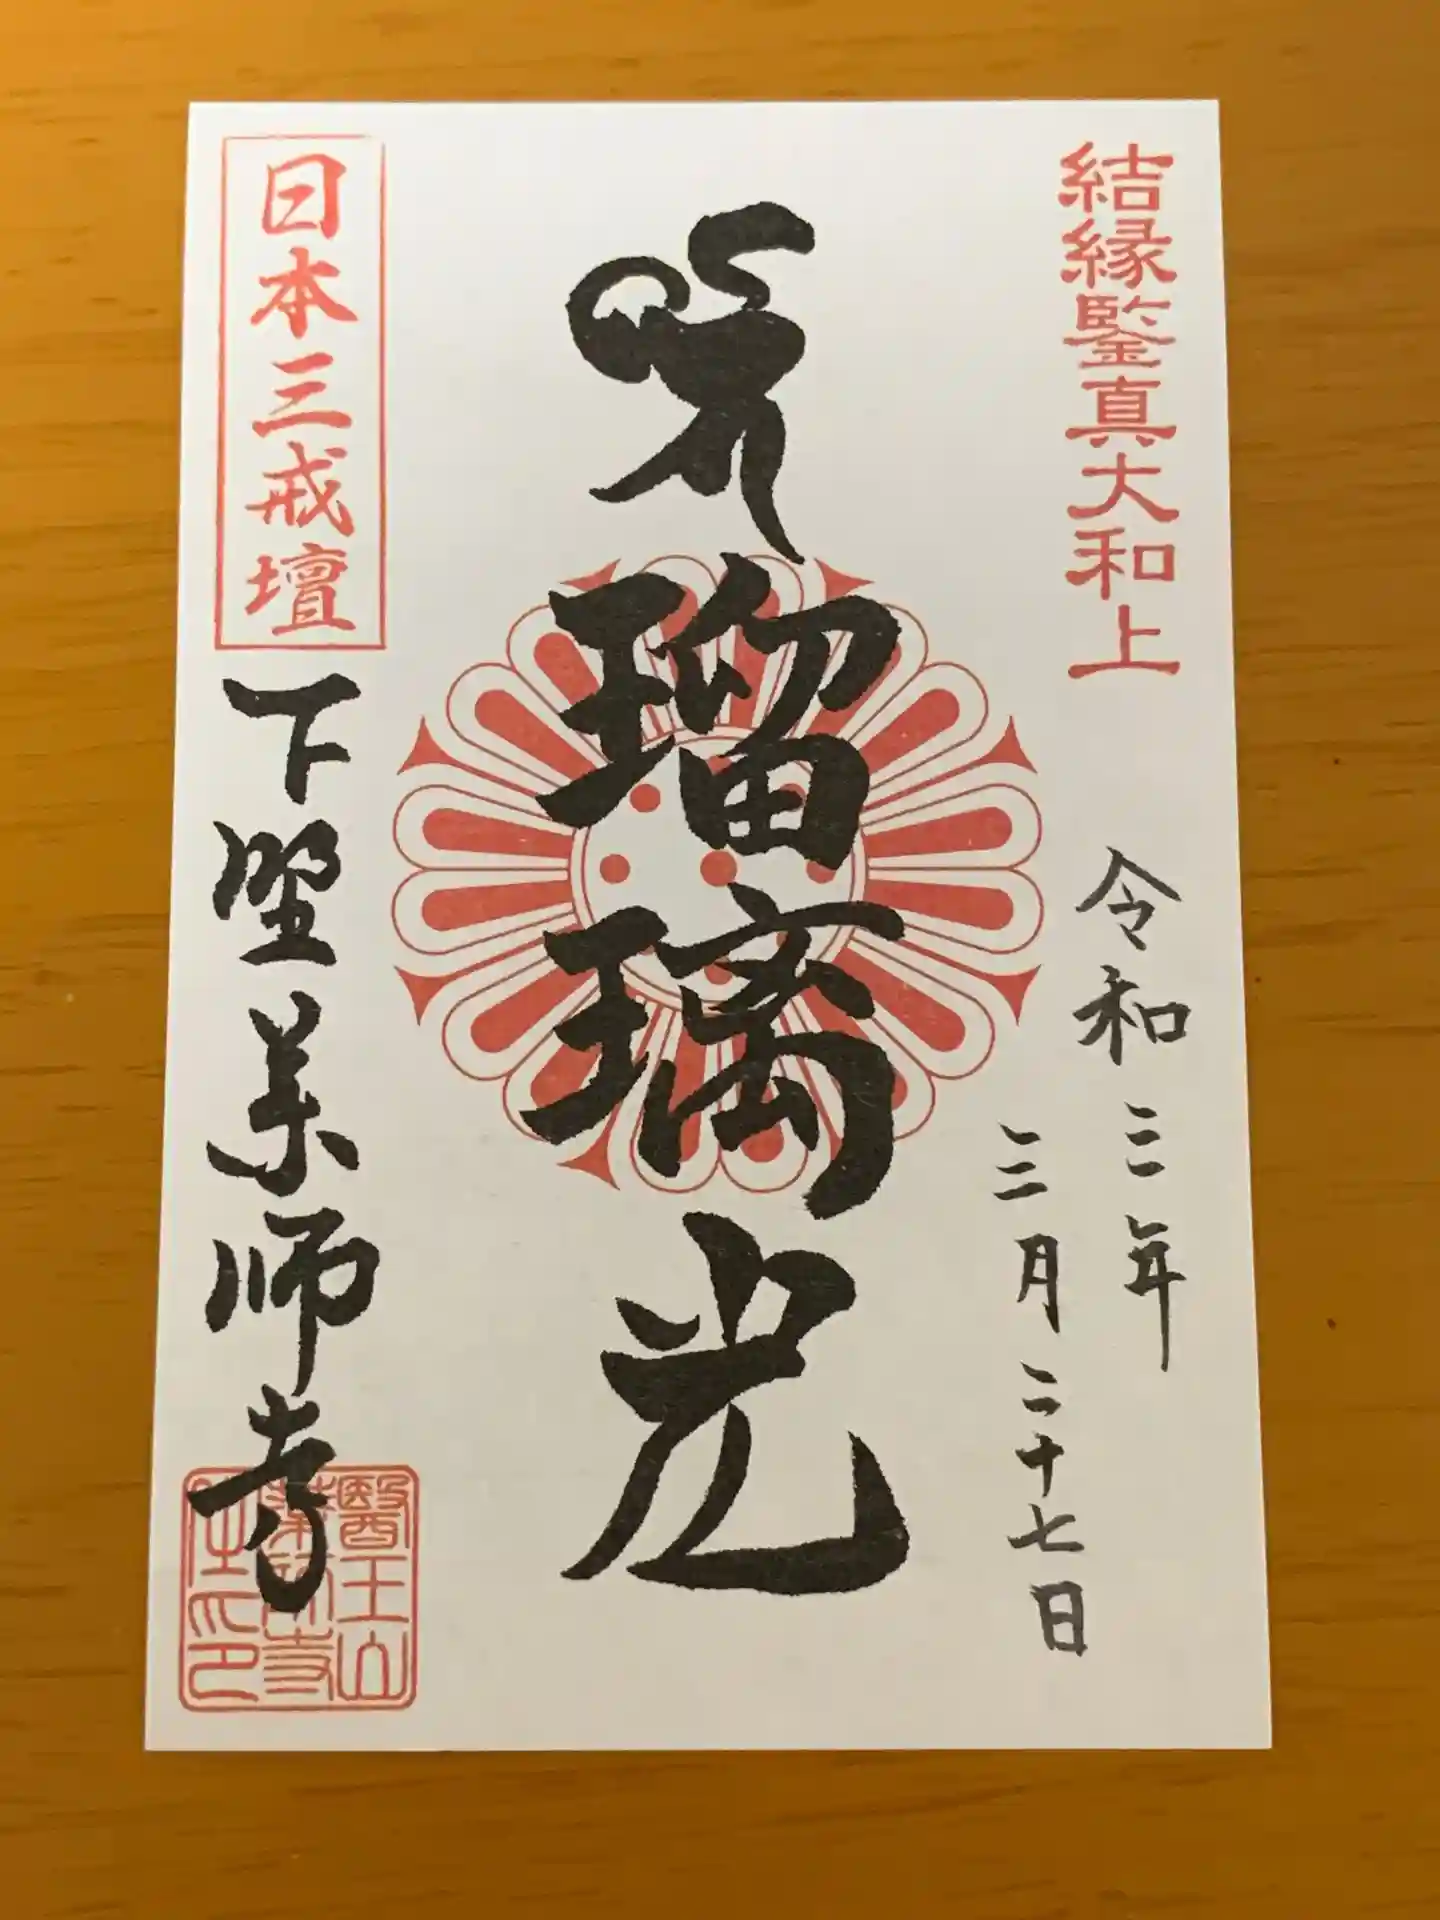 結縁鑒真大和上
令和三年
三月二十七日
瑠璃光
日本三戒壇
下野薬師寺
醫王山
薬師寺
之印